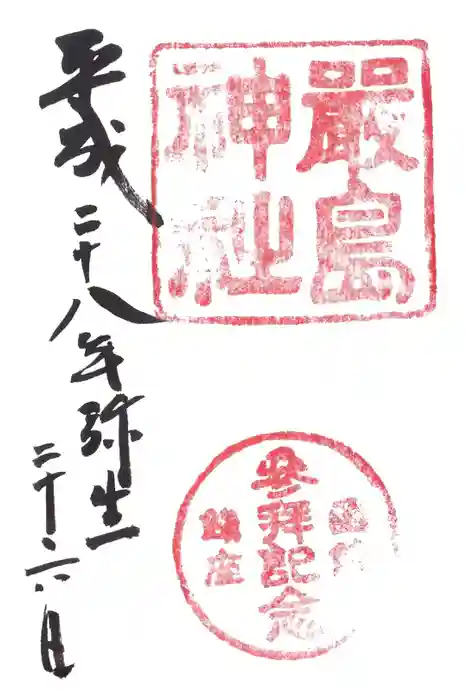 嚴島
神社
参拝記念
鎮座
平成二十八年弥生
二十六日